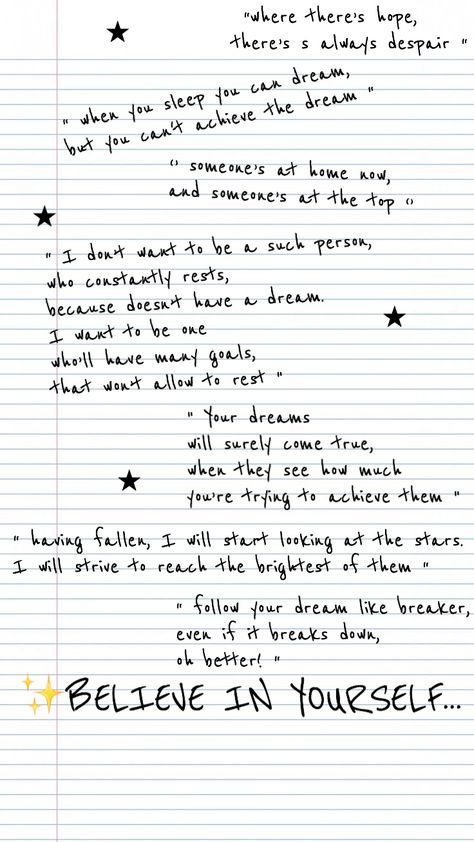 "where there's hope,
there's s always despair "
" when you sleep you can dream,
but you can't achieve the dream "
" someone's at home now,
and someone's at the top "
" I don't want to be a such person,
who constantly rests,
because doesn't have a dream.
I want to be one
who'll have many goals,
that won't allow to rest "
" Your dreams
will surely come true,
when they see how much
you're trying to achieve them "
" having fallen, I will start looking at the stars.
I will strive to reach the brightest of them "
" follow your dream like breaker,
even if it breaks down,
oh better! "
✨BELIEVE IN YOURSELF...